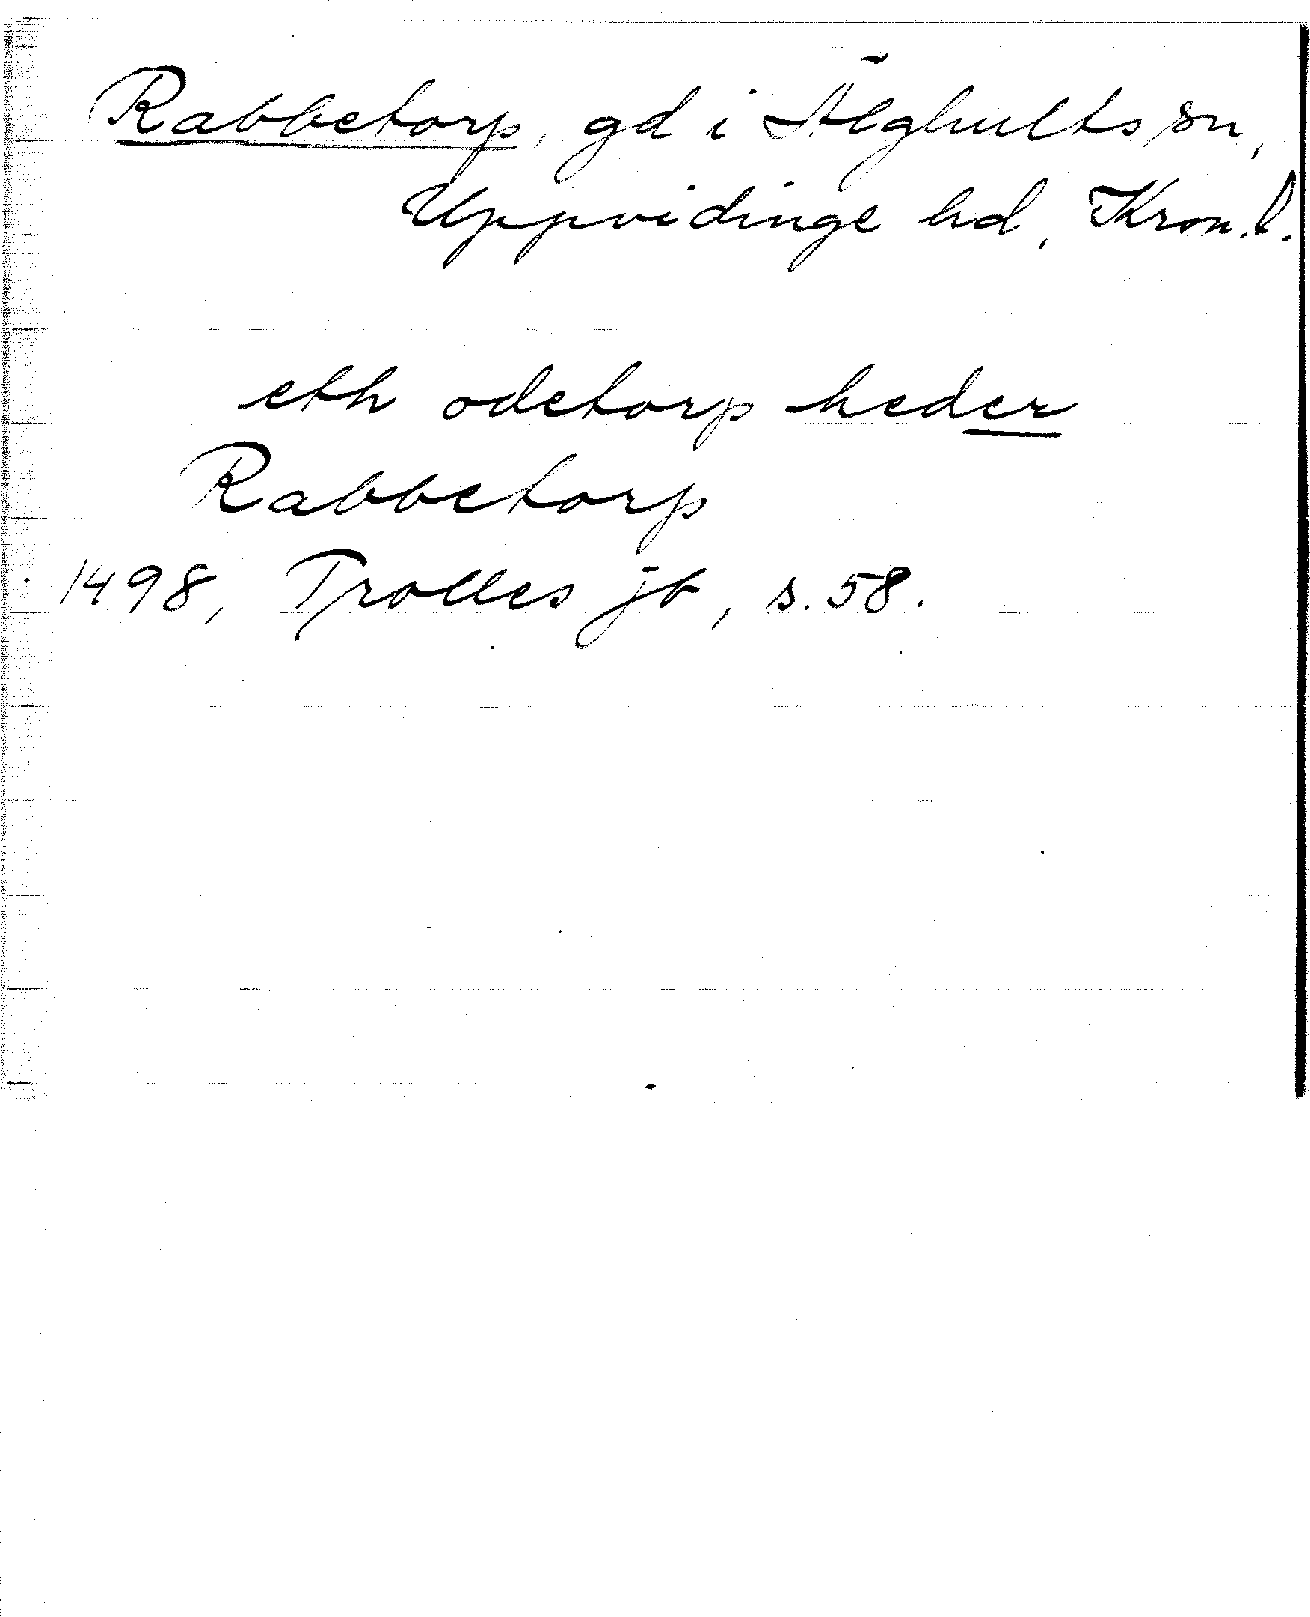 Rabbetorp, gd i Älghults sn,
Uppvidinge hd, Kron.l.
eth odetorp heder
Rabbetorp
1498, Trolles jb, s. 58.